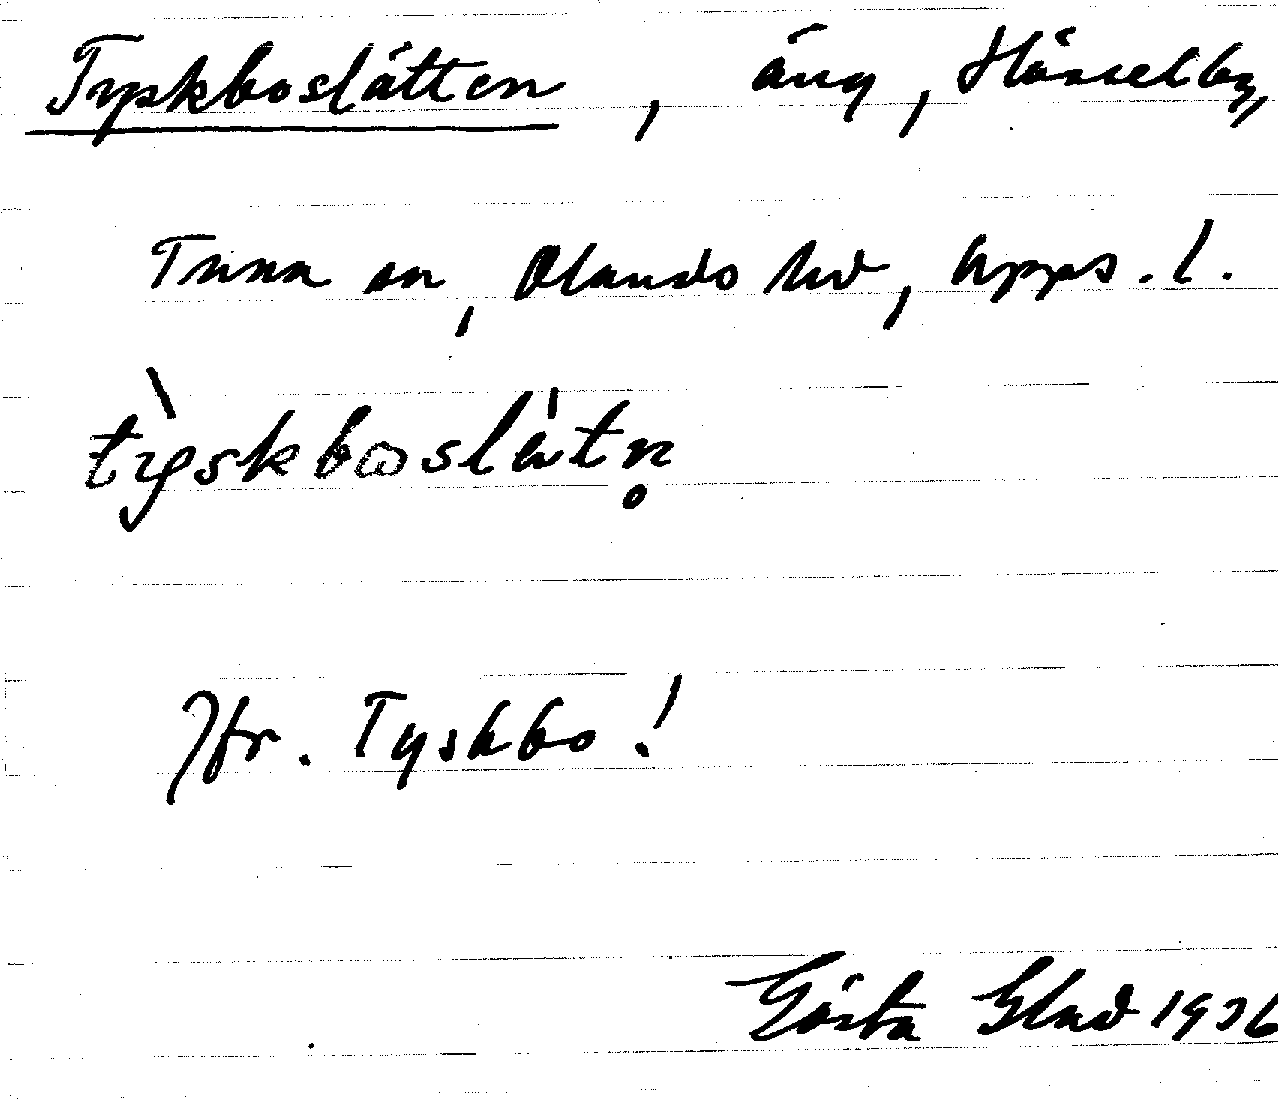 Tyskboslätten, äng, Hässelby,
Tuna sn, Olands hd, Upps. l.
tỳskbωslàtn̥
Jfr. Tyskbo!
Gösta Blad 1936